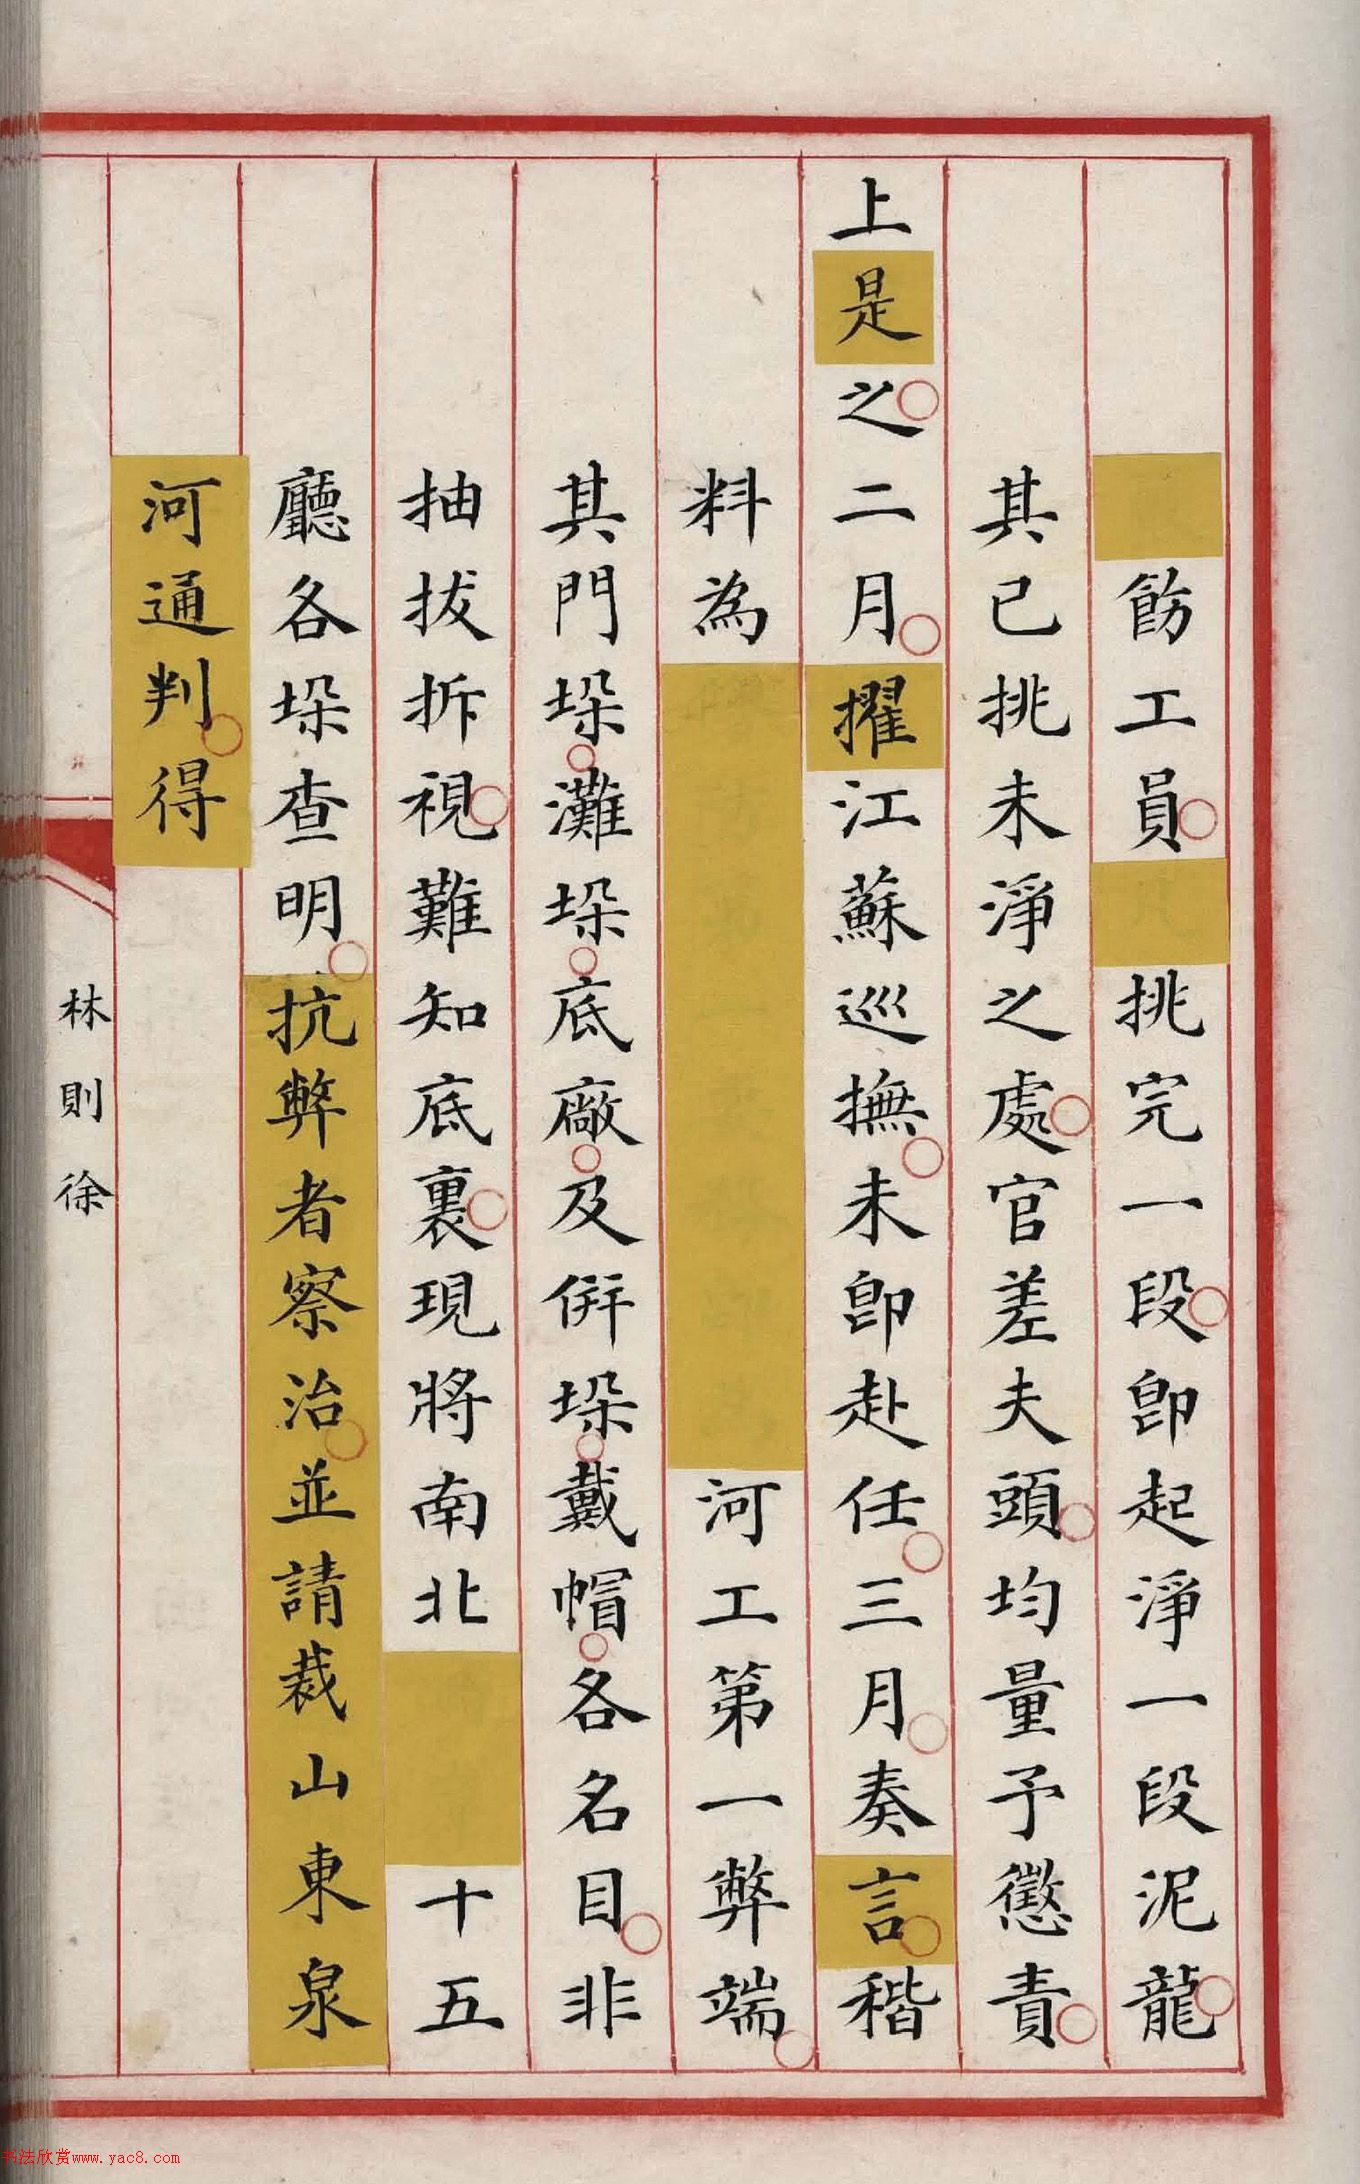 飭工員挑完一段卽起淨一段泥龍
其已挑未淨之處官差夫頭均量予懲責
上是之二月擢江蘇巡撫未卽赴任三月奏言稭
料為河工第一弊端
其門垛灘垛底廠及倂垛戴帽各名目非
抽拔拆視難知底裏現將南北十五
廳各垛查明抗弊者察治並請裁山東泉
河通判得
林則徐
书法欣赏www.yac8.com